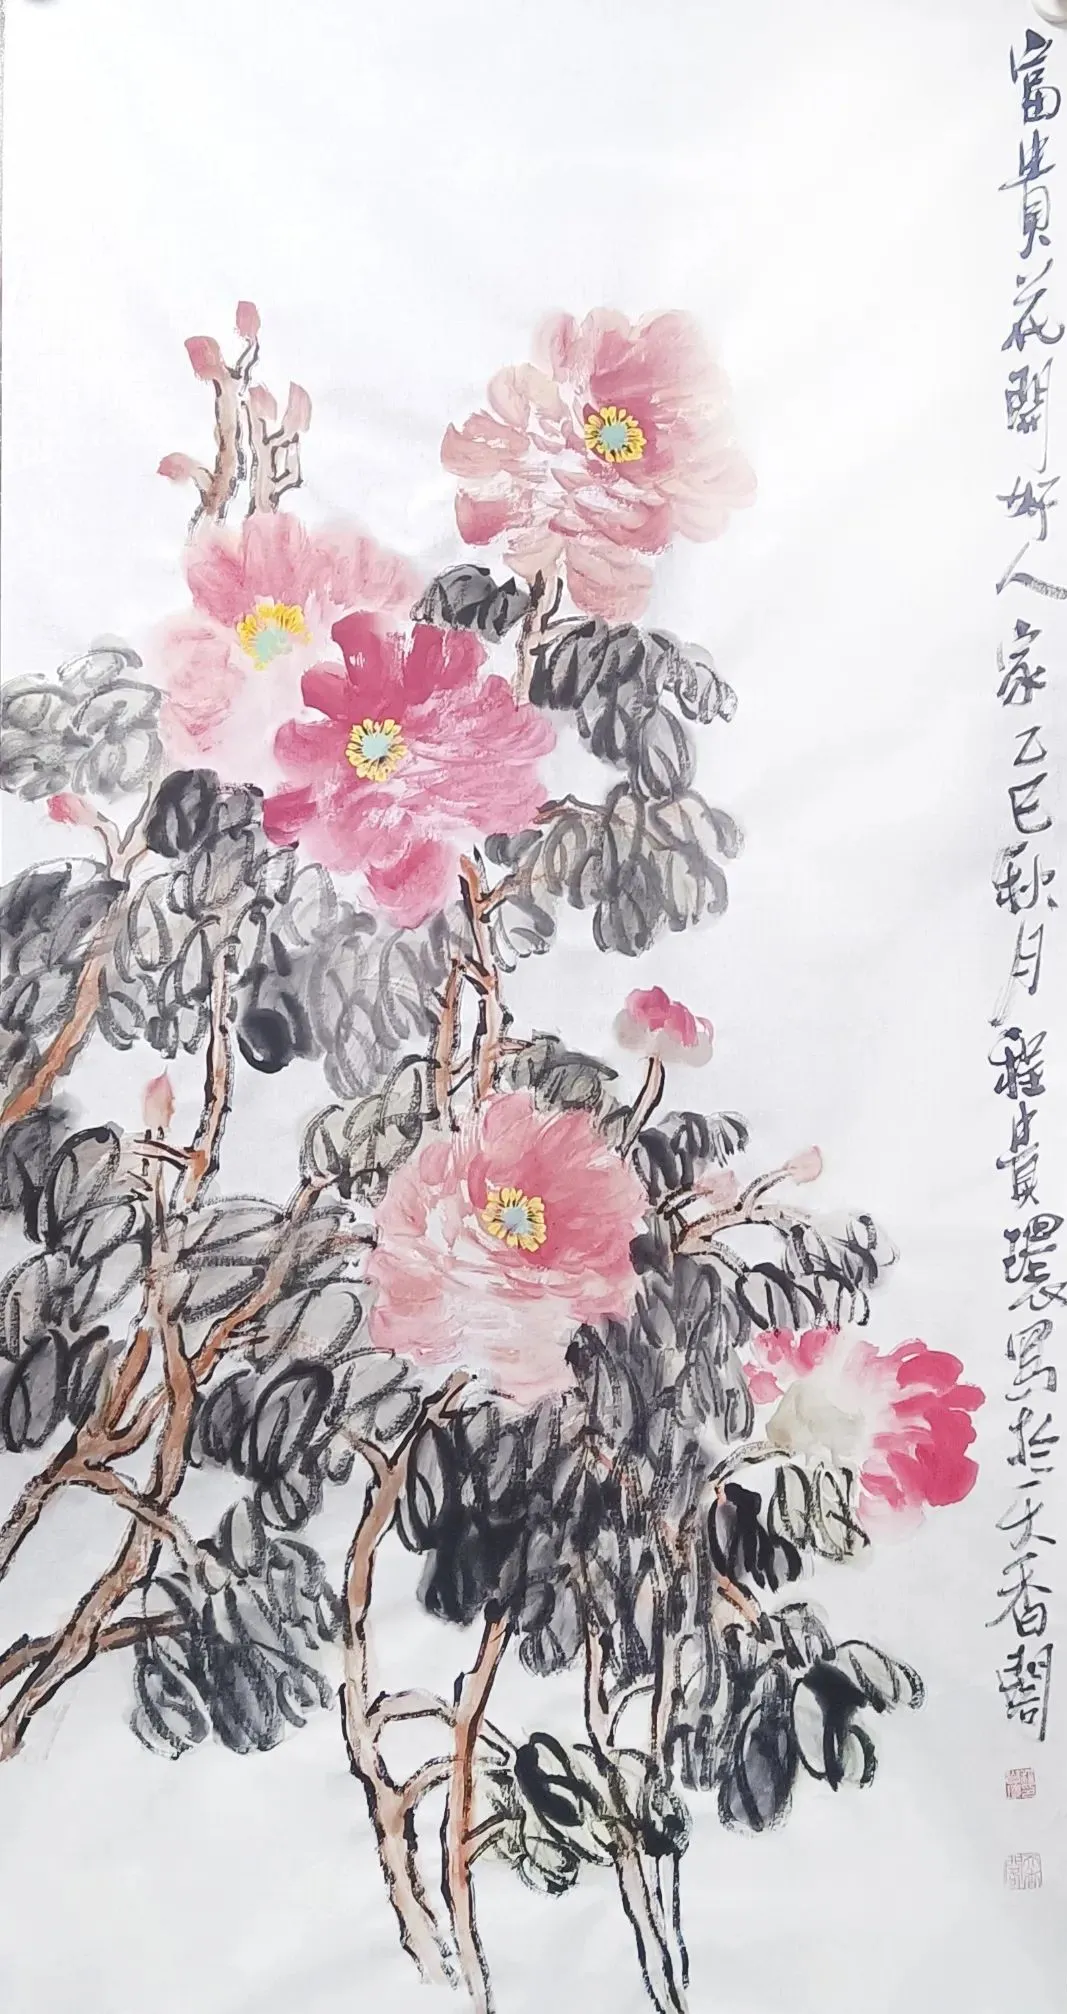 富貴花開好人家乙巳秋月程貴環寫於天香閣